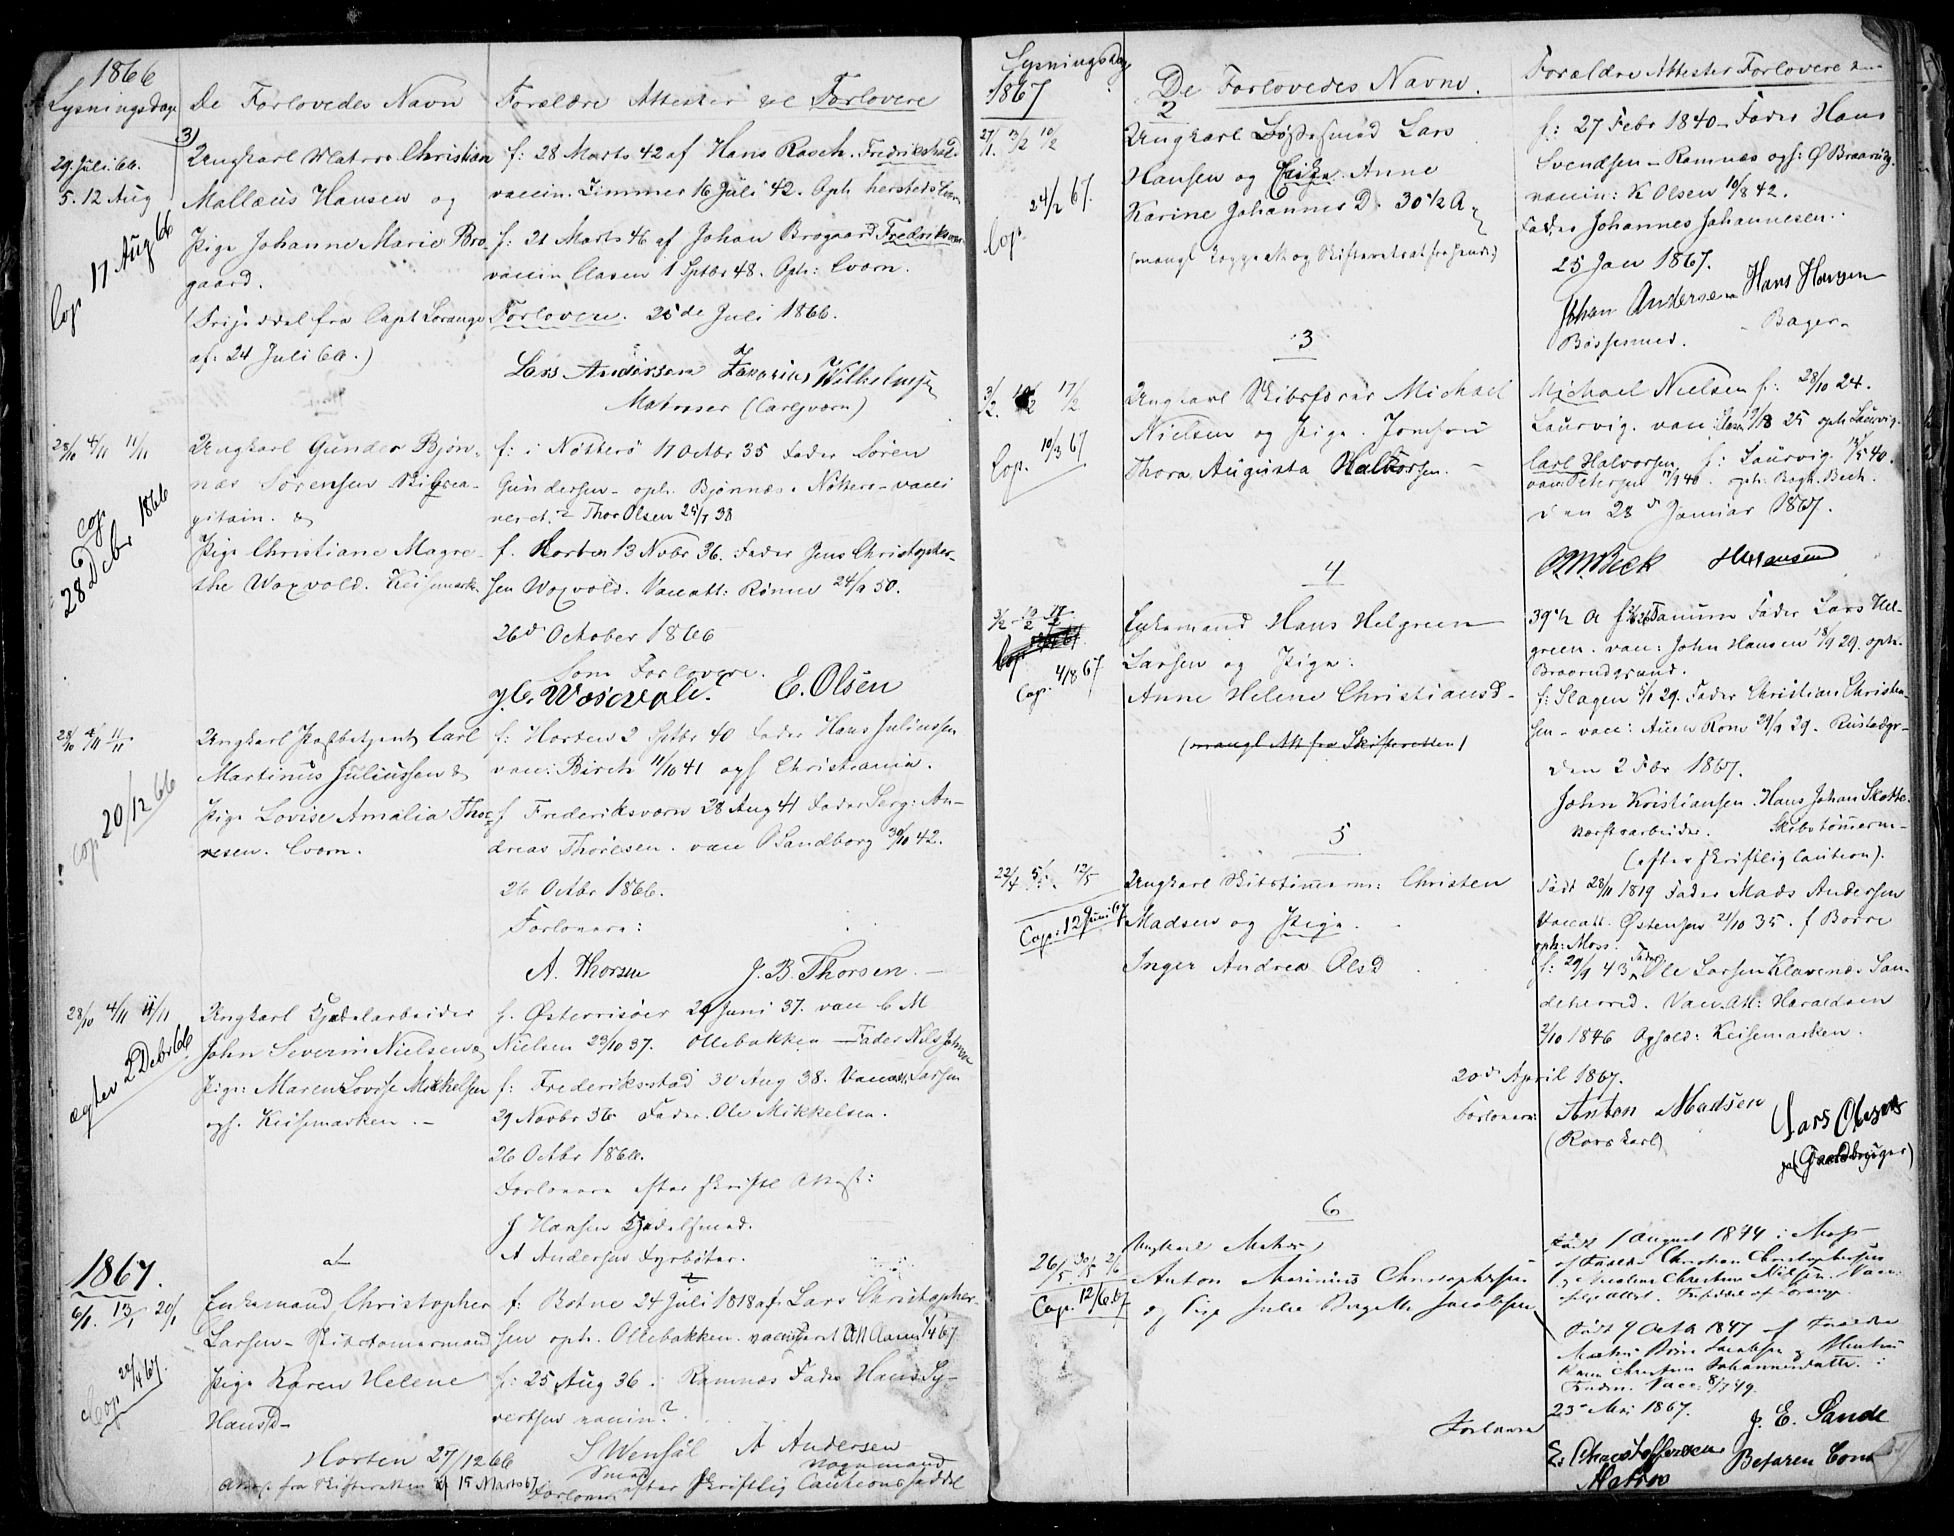 1866
Lysningsdage
De Forlovedes Navn
Forældre Attester &c Forlovere
3)
29 Juli. 66.
5. 12 Aug
Cop. 17 Aug 66
Ungkarl Matros Christian
Mallæus Hansen og
Pige Johanne Marie Bro-
gaard.
(Friseddel fra Capt Lorange
af: 24 Juli 66.)
f: 28 Marts 42 af Hans Rasch. Fredrikshald
vaccin. Zimmer 16 Juli 42. Oph: hersteds
f: 21 Marts 46 af Johan Brogaard Fredriksværn
vaccin Clasen 1 Septbr 48. Oph: Cværn.
Forlovere. 25de Juli 1866.
Lars Andersen Zakarias Wilhelmsen
Matroser (Carljværn)
28/10 4/11 11/11
cop
28 Decbr 1866
Ungkarl Gunder Bjøn-
næs Sørensen Skibsca-
pitain. &
Pige Christiane Magre-
the Woxvold. Keisemark.
f: i Nøtterø 17 Octbr 35 Fader Søren
Gundersen - oph. Bjønnæs. Nøtterø - vacci
neret. Thor Olsen 25/7 38
f. Horten 13 Novbr 36. Fader Jens Christopher-
sen Woxvold. Vaccatt: Rønne 24/9 50.
26de October 1866
Som Forlovere.
J. C. Woxvold. E. Olsen
28/10 4/11 11/11
cop 20/12 66
Ungkarl Postbetjent Carl
Martinus Juliussen &
Pige Lovise Amalia Tho-
resen. Cværn.
f: Horten 2 Septbr 40 Fader Hans Juliussen
vac: Birch 11/10 41 oph Christiania.
f Frederiksværn 28 Aug 41 Fader Serg: An-
dreas Thoresen. vacc O Sandborg 30/10 42.
26 Octbr 1866.
Forlovere:
A. Thorsen J. B. Thorsen.
28/10 4/11 11/11
ægtev 2 Decbr 66
Ungkarl Kjedelarbeider
John Severin Nielsen &
Pige: Maren Lovise Mikkelsen
oph. Keisemarken.
f. Østerrisøer 29 Juni 37. vacc C M
Nielsen 29/10 37. Ollebakken - Fader Nils Johnsen
f: Frederiksstad 30 Aug 38. Vaccatt. Larsen
29 Novbr 36 Fader. Ole Mikkelsen.
26 Octbr 1866.
Forlovere efter skriftl Attest:
J Hansen Kjedelsmed.
A Andersen Fyrbøter.
1867.
6/1. 13/1 20/1
Cop 22/4 67.
Enkemand Christopher
Larsen - Skibstømmermand
Pige Karen Helene
HansD-
f: Botne 24 Juli 1818 af Lars Christopher-
sen oph. Ollebakken. vaccineret Att Aasen 1/4 67.
f: 25 Aug 36. Ramnæs Fader Hans Sy-
vertsen vaccin?
Horten 27/12 66 S Wensil A Andersen
Smed Vognmand
Attest fra Skifteretten af 15 Marts 67 Forlovere efter skriftlig Cautionsseddel
Lysningsdag
1867
De Forlovedes Navne.
Forældre Attester Forlovere &
2
27/1. 3/2 10/2
Cop. 24/2 67.
Ungkarl Bøssesmed Lars
Hansen og Pige Anne
Karine Johannes D. 30 1/2 A
(mangl Koppeatt og Skifteretsatt fra hende)
f: 27 Febr 1840 - Fader Hans
Svendsen - Ramnæs oph: Ø Braarud.
vaccin: K Olsen 10/8 42.
Fader Johannes Johannesen.
25 Jan 1867.
Johan Andersen Hans Hansen
Bøssesmed. Bager
3
3/2. 10/2 17/2
Cop. 10/3 67
Ungkarl Skibsfører Michael
Nielsen og Pige. Jomfru
Thora Augusta Halvorsen.
Michael Nielsen f: 28/10 24.
Laurvig. vacc: 7/8 25 oph Laurvig.
Carl Halvorsen f: Laurvig 15/5 40.
vacc: Petersen 17/9 40. oph: Bagh. Bech.
den 28de Januar 1867.
O.M. Beck H. Hansen
4
3/2 10/2 17/2
Cop. 4/8 67
Enkemand Hans Helgreen
Larsen og Pige:
Anne Helene ChristiansD.
(mangl Att fra Skifteretten)
39 1/2 A Tanum Fader Lars Hel-
green. vac: John Hansen 18/9 29. oph.
Braarudgrund.
f: Slagen 5/1 29. Fader Christian Christen-
sen - vacc: Auen Rom 29/9 29. Rustadgr-
den 2 Febr 1867.
John Kristiansen. Hans Johan Skotte.
Værftsarbeider. Skibstømmerm-
(efter skriftlig Caution).
5
22/4 5/5. 12/5
Cop: 12 Juni 67
Ungkarl Skibstømmerm: Christen
Madsen og Pige.
Inger Andrea OlsD
Født 28/11 1819 Fader Mads Andersen
Vaccatt. Østensen 21/10 35. f Borre
oph: Moss.
f: 29/9 43 Fader Ole Larsen Klavenæs San-
deherred. Vacc. Att: Haraldsen
2/10 1846 Ophold: Keisemarken.
20de April 1867.
Forlovere: Anton Madsen Lars Olsen
(Rorskarl) (Gaardbruger)
6
26/5 30/5 2/6
Cop. 12/6 67
Ungkarl Matros
Anton Marinius Christophersen
og Pige Julie Bergette Jacobsen
Født 1 August 1844 i Moss
af Fader Christian Christophersen
og Moder Christine Nilsen. Vacc:
Friseddel af Lorange.
Født 9 Octb 1847 af Fader
Jacobsen og Moder
Karen Christine Johannesdatter.
Vacc: 8/7 49.
23de Mai 1867.
Forlovere J. E. Sande
E. Christoffersen Befaren Const
Matros